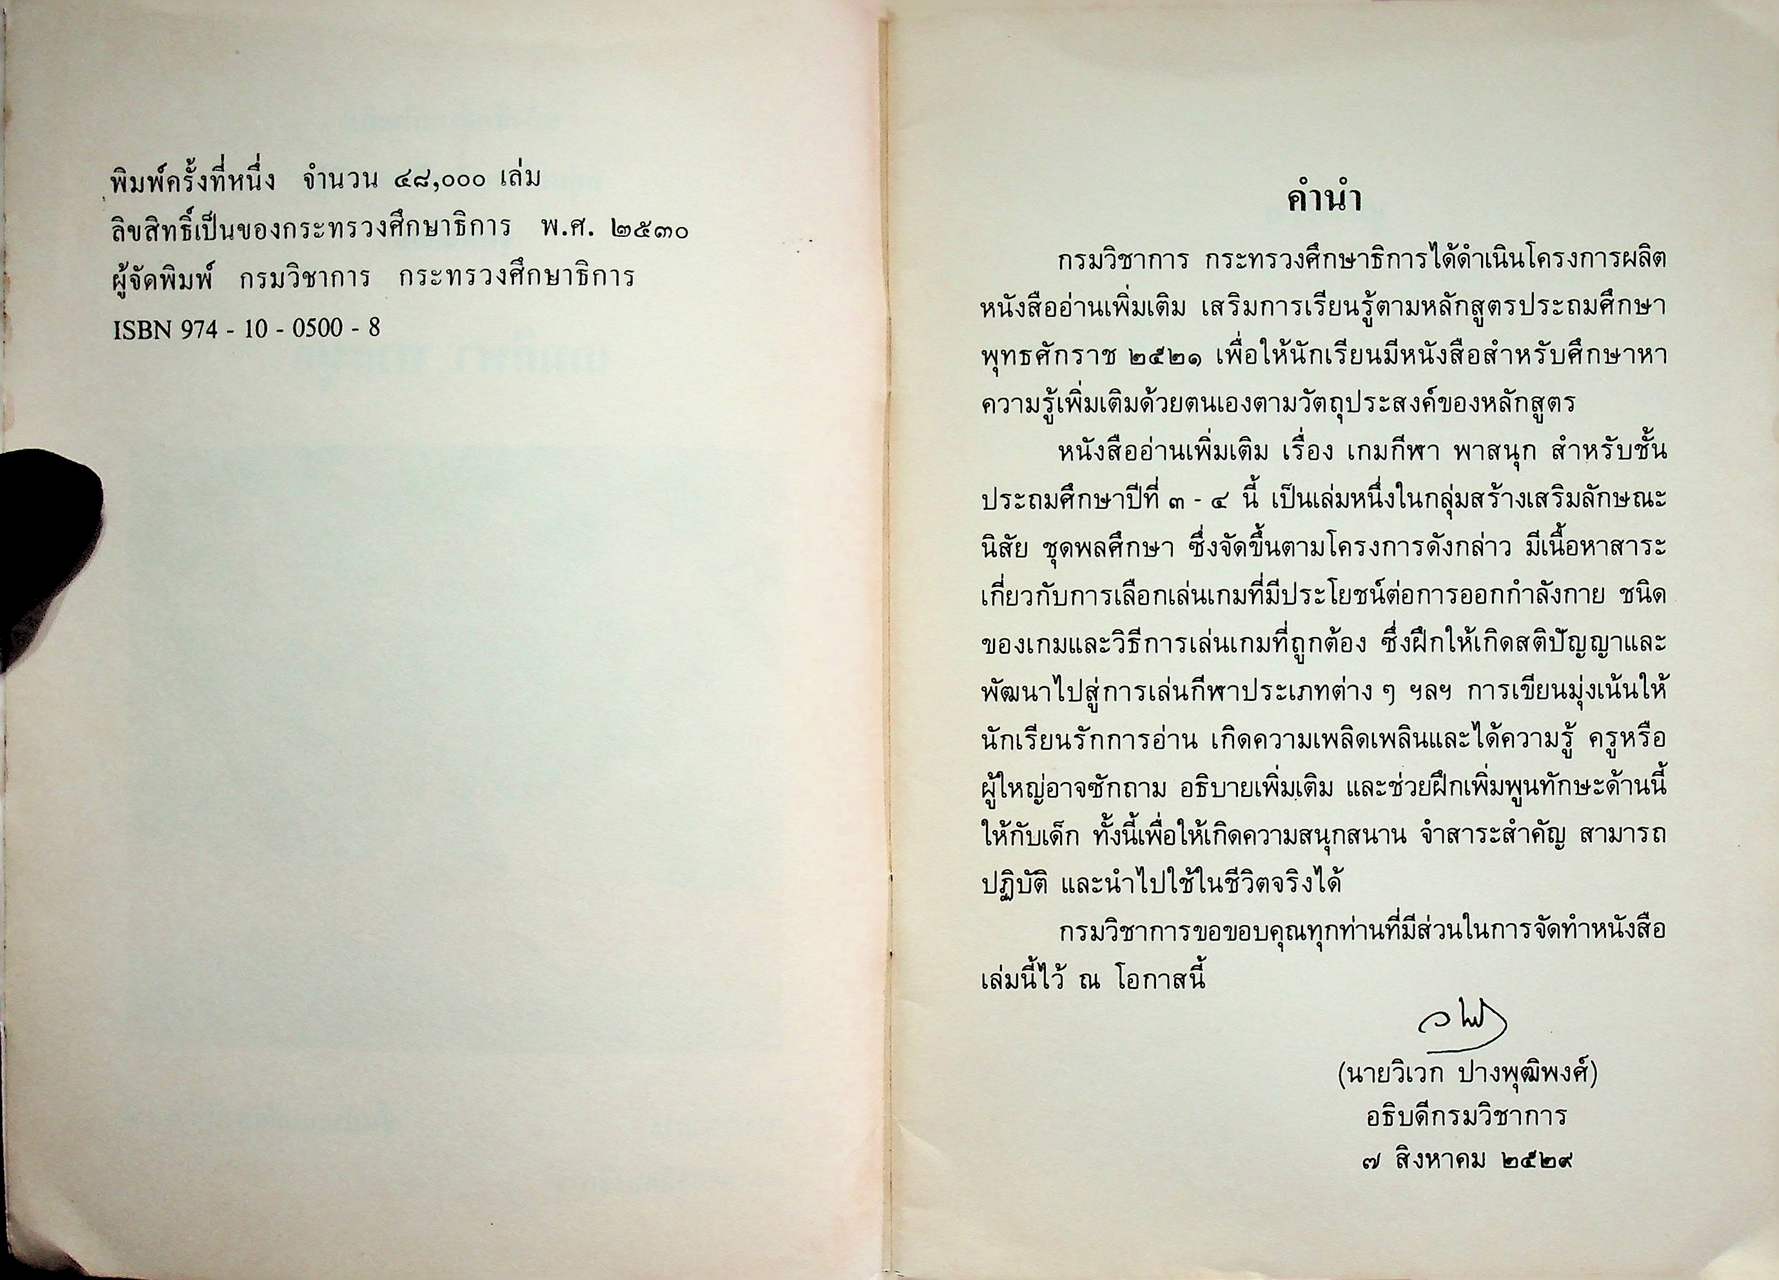 พิมพ์ครั้งที่หนึ่ง จำนวน ๔๘,๐๐๐ เล่ม
ลิขสิทธิ์เป็นของกระทรวงศึกษาธิการ พ.ศ. ๒๕๓๐
ผู้จัดพิมพ์ กรมวิชาการ กระทรวงศึกษาธิการ
ISBN 974 - 10 - 0500 - 8
คำนำ
กรมวิชาการ กระทรวงศึกษาธิการได้ดำเนินโครงการผลิต
หนังสืออ่านเพิ่มเติม เสริมการเรียนรู้ตามหลักสูตรประถมศึกษา
พุทธศักราช ๒๕๒๑ เพื่อให้นักเรียนมีหนังสือสำหรับศึกษาหา
ความรู้เพิ่มเติมด้วยตนเองตามวัตถุประสงค์ของหลักสูตร
หนังสืออ่านเพิ่มเติม เรื่อง เกมกีฬา พาสนุก สำหรับชั้น
ประถมศึกษาปีที่ ๓ - ๔ นี้ เป็นเล่มหนึ่งในกลุ่มสร้างเสริมลักษณะ
นิสัย ชุดพลศึกษา ซึ่งจัดขึ้นตามโครงการดังกล่าว มีเนื้อหาสาระ
เกี่ยวกับการเลือกเล่นเกมที่มีประโยชน์ต่อการออกกำลังกาย ชนิด
ของเกมและวิธีการเล่นเกมที่ถูกต้อง ซึ่งฝึกให้เกิดสติปัญญาและ
พัฒนาไปสู่การเล่นกีฬาประเภทต่าง ๆ ฯลฯ การเขียนมุ่งเน้นให้
นักเรียนรักการอ่าน เกิดความเพลิดเพลินและได้ความรู้ ครูหรือ
ผู้ใหญ่อาจซักถาม อธิบายเพิ่มเติม และช่วยฝึกเพิ่มพูนทักษะด้านนี้
ให้กับเด็ก ทั้งนี้เพื่อให้เกิดความสนุกสนาน จำสาระสำคัญ สามารถ
ปฏิบัติ และนำไปใช้ในชีวิตจริงได้
กรมวิชาการขอขอบคุณทุกท่านที่มีส่วนในการจัดทำหนังสือ
เล่มนี้ไว้ ณ โอกาสนี้
(นายวิเวก ปางพุฒิพงศ์)
อธิบดีกรมวิชาการ
๗ สิงหาคม ๒๕๒๙